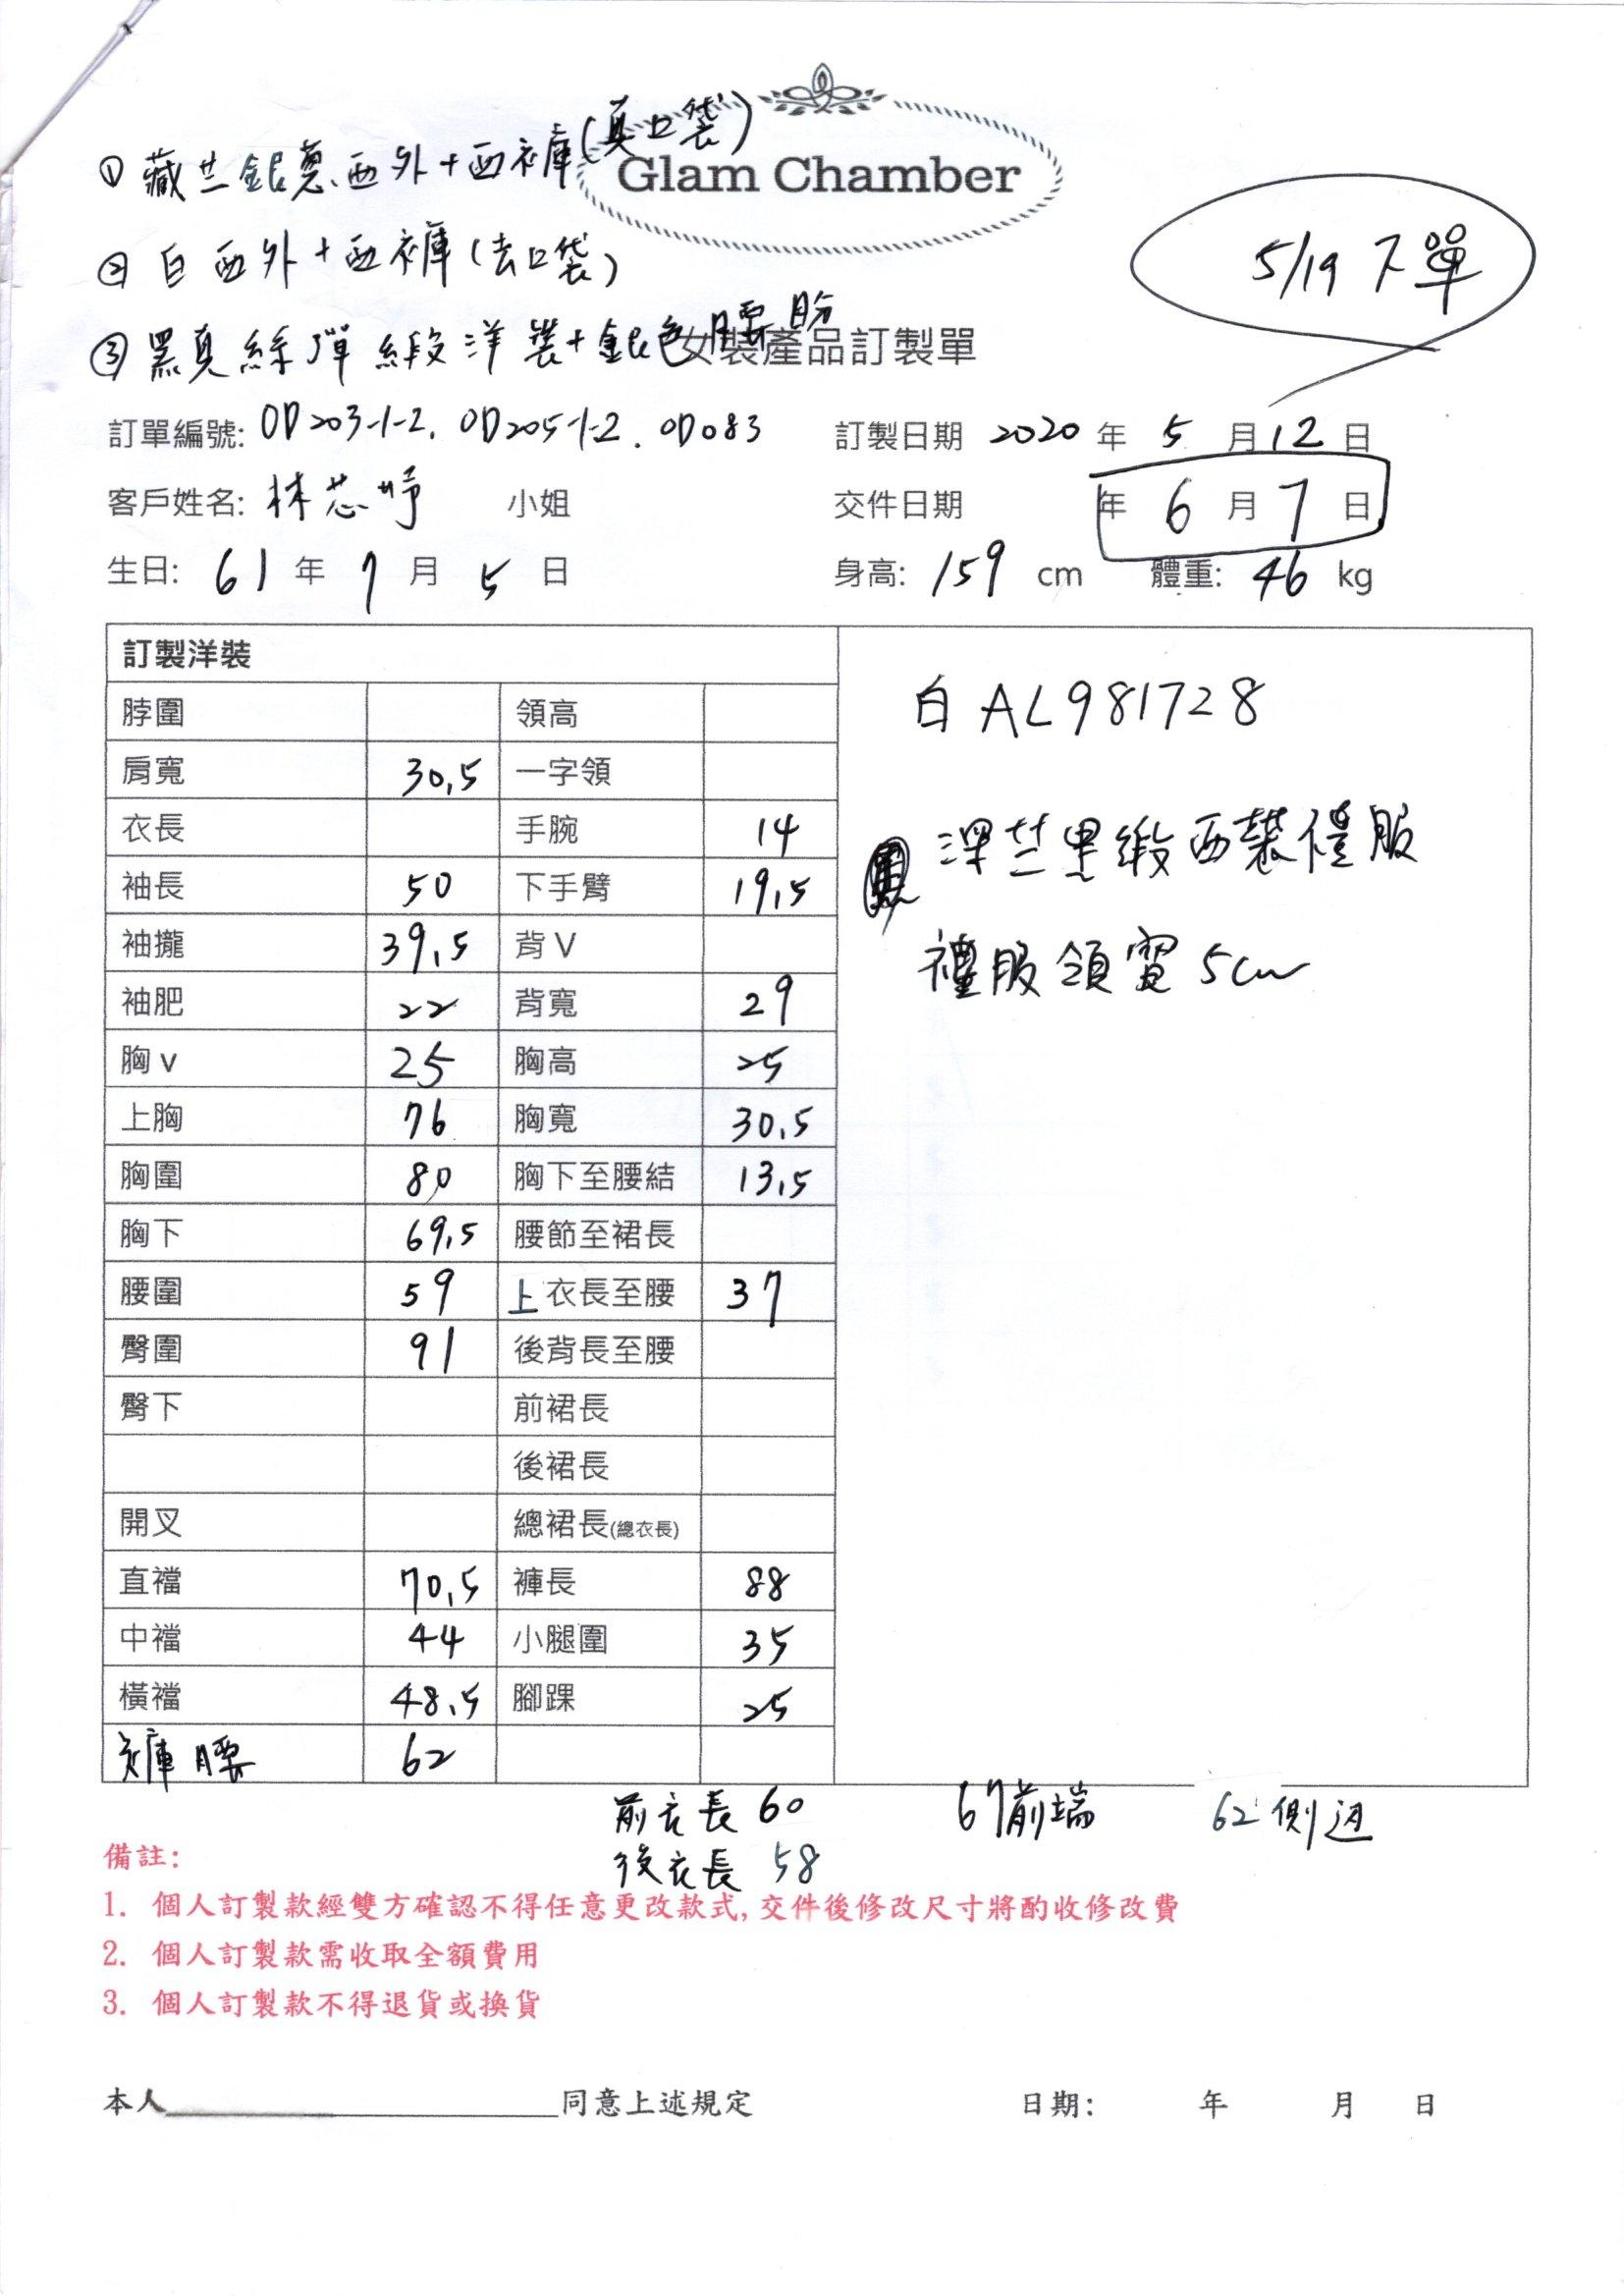 ①藏芏銀蔥西外+西褲(真口袋)
Glam Chamber
②白西外+西褲(去口袋)
5/19下單
③黑真絲彈緞洋裝+銀色腰
女裝產品訂製單
訂單編號: OD203-1-2. OD205-1-2. OD083 訂製日期 2020 年 5 月 12 日
客戶姓名: 林芯 小姐 交件日期 年 6 月 7 日
生日: 61 年 7 月 5 日 身高: 159 cm 體重: 46 kg
訂製洋裝
脖圍 領高
肩寬 30.5 一字領
衣長 手腕 14
袖長 50 下手臂 19.5
袖攏 39.5 背V
袖肥 22 背寬 29
胸v 25 胸高 25
上胸 76 胸寬 30.5
胸圍 80 胸下至腰結 13.5
胸下 69.5 腰節至裙長
腰圍 59 上衣長至腰 37
臀圍 91 後背長至腰
臀下 前裙長
後裙長
開叉 總裙長(總衣長)
直襠 70.5 褲長 88
中襠 44 小腿圍 35
橫襠 48.5 腳踝 25
褲腰 62
白AL981728
深芏黑緞西裝禮服
禮服領寬5cm
前衣長60 67前端 62側边
後衣長 58
備註:
1. 個人訂製款經雙方確認不得任意更改款式,交件後修改尺寸將酌收修改費
2. 個人訂製款需收取全額費用
3. 個人訂製款不得退貨或換貨
本人 同意上述規定 日期: 年 月 日